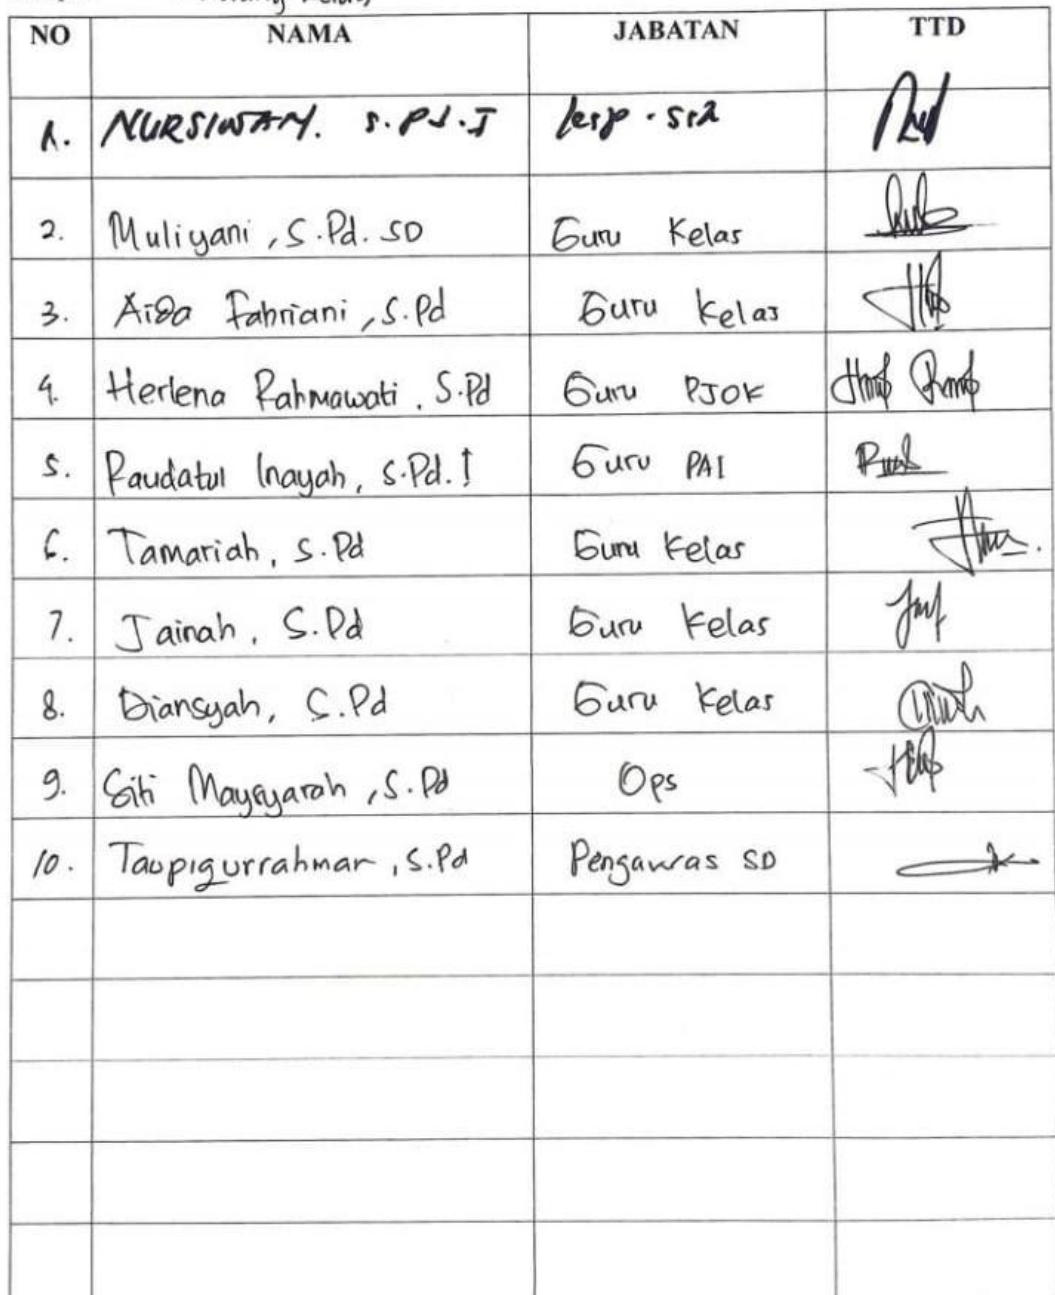 NO NAMA JABATAN TTD
1. NURSIWAN. S.Pd.I
2. Muliyani, S.Pd. SD Guru Kelas
3. Aida Fahriani, S.Pd Guru Kelas
4. Herlena Rahmawati, S.Pd Guru PJOK
5. Raudatul Inayah, S.Pd.I Guru PAI
6. Tamariah, S.Pd Guru Kelas
7. Jainah, S.Pd Guru Kelas
8. Diansyah, S.Pd Guru Kelas
9. Siti Maysyarah, S.Pd Ops
10. Taupiqurrahman, S.Pd Pengawas SD